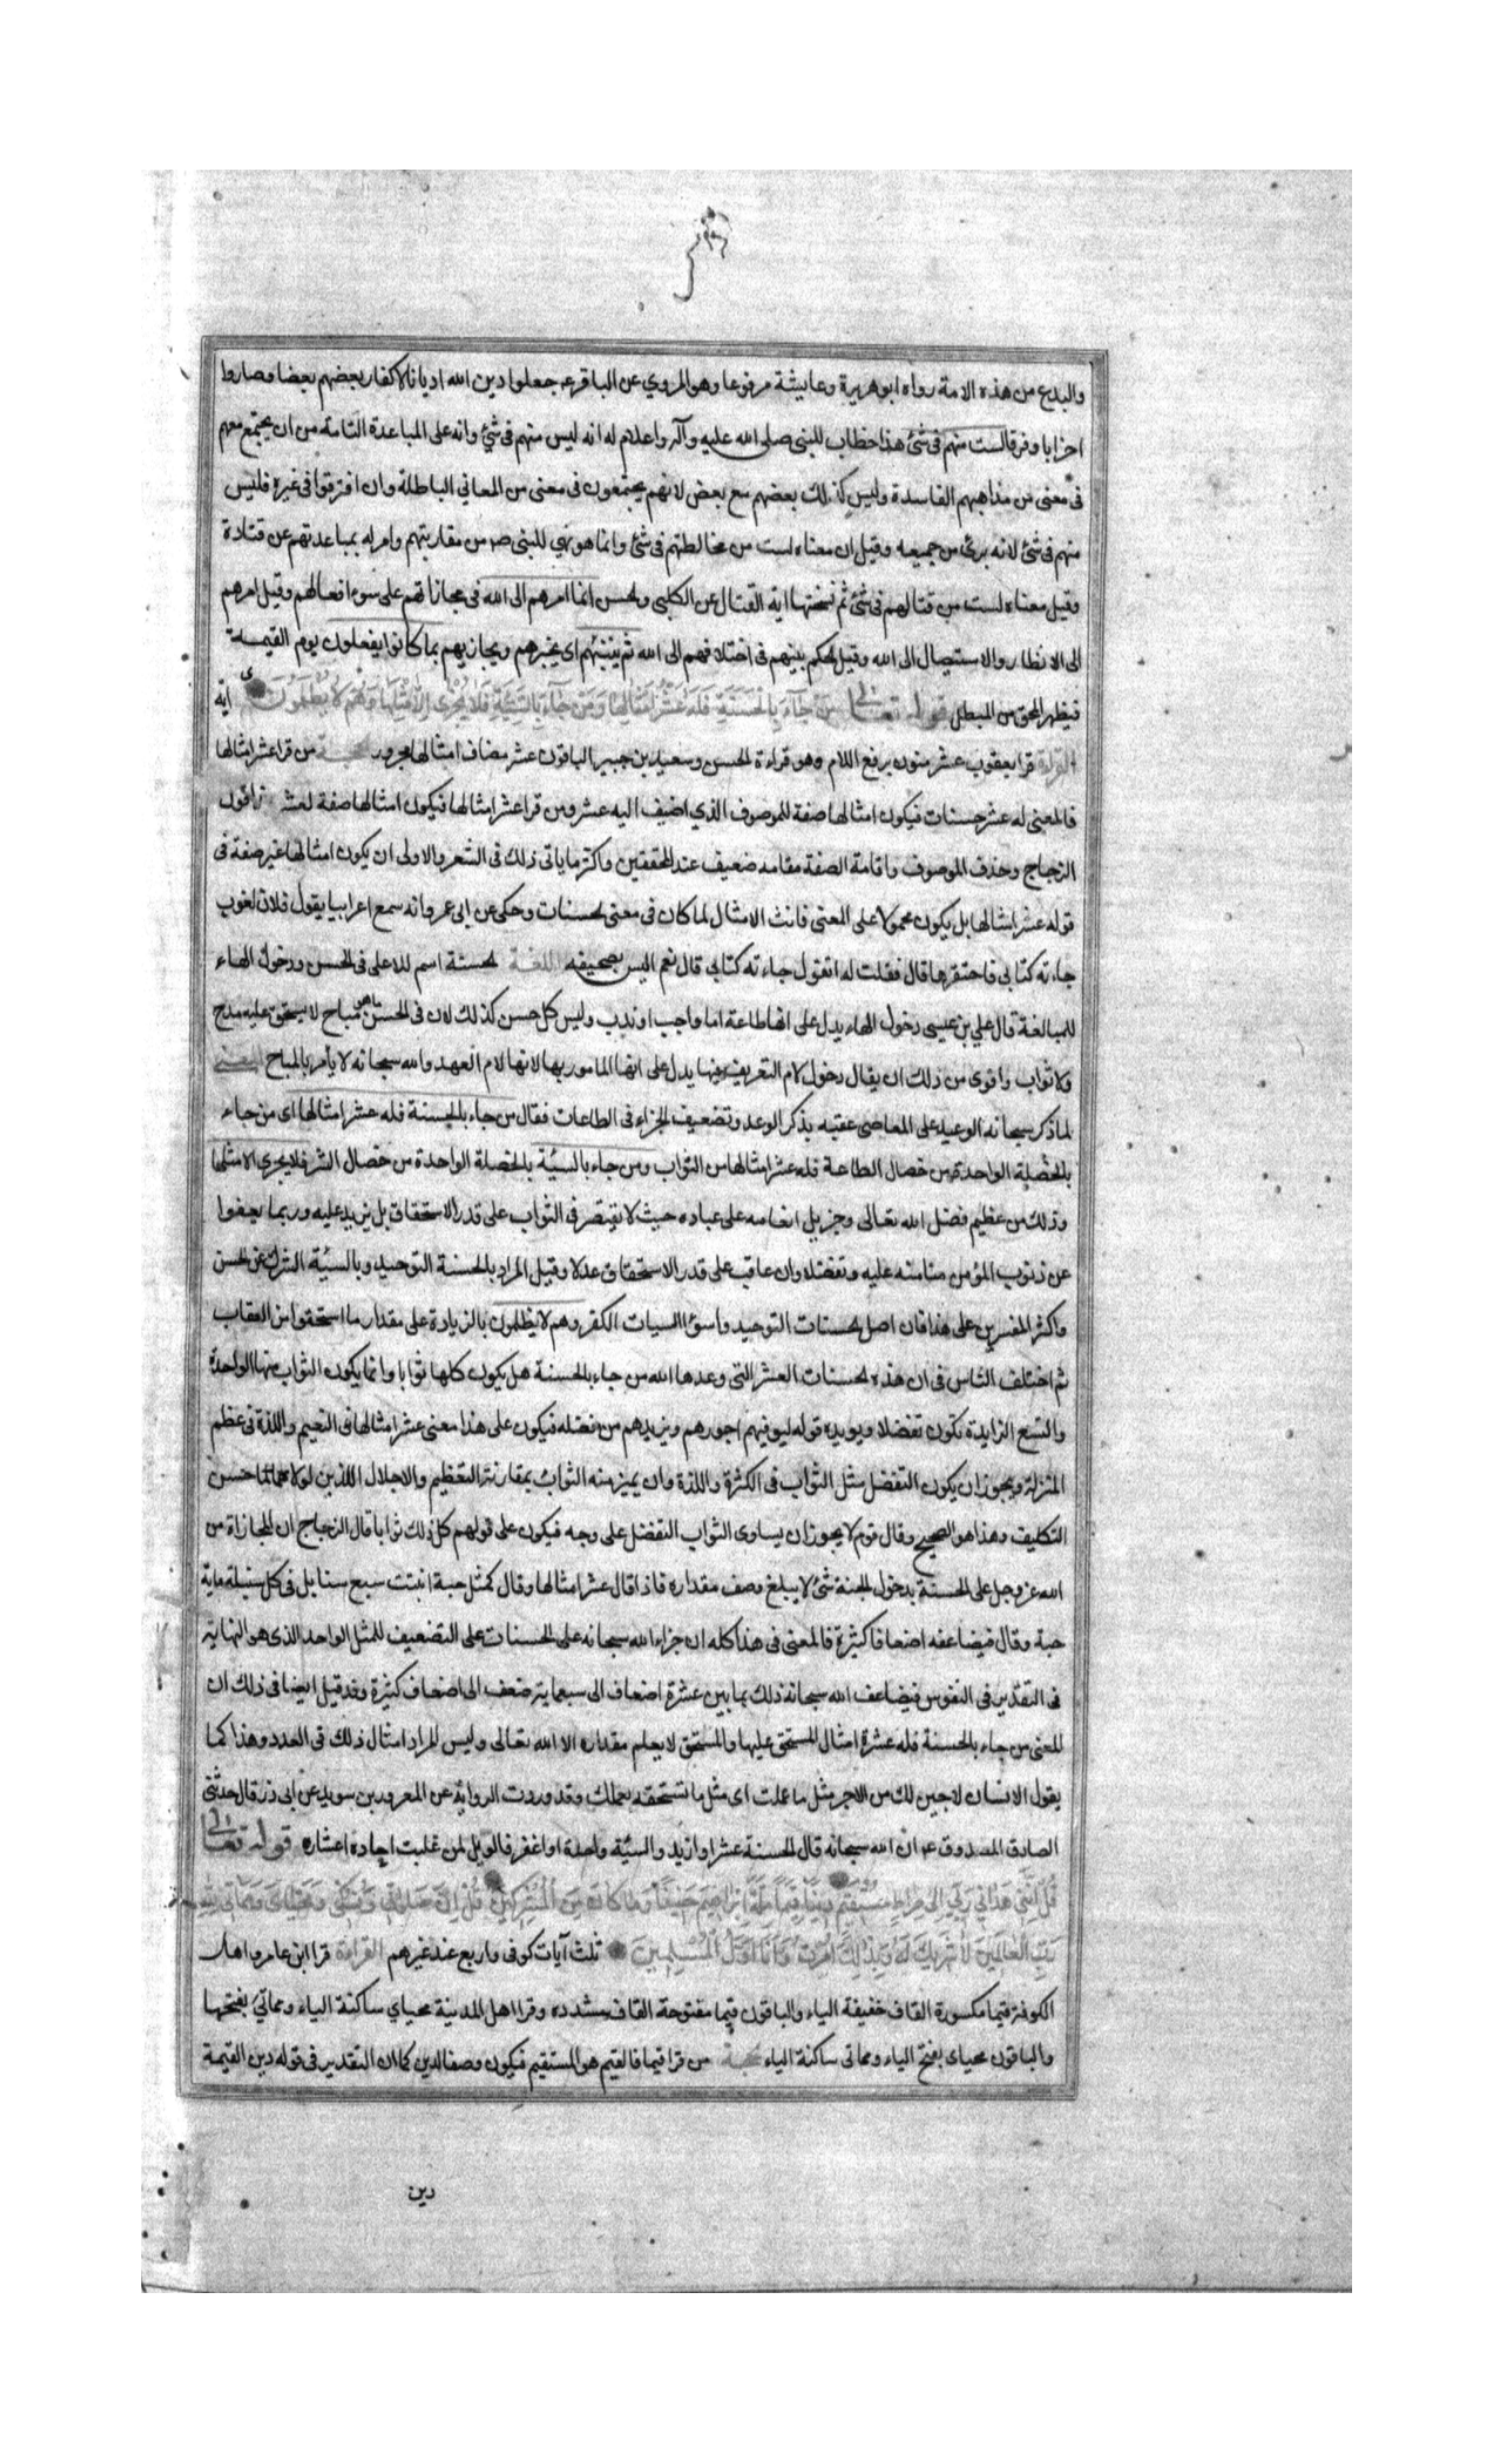 والبدع من هذه الامة رواه ابوهريرة وعايشة مرفوعا وهو المروي عن الباقر ع جعلوا دين الله اديانا لاكفار بعضهم بعضا وصاروا
احزابا وفرقا لست منهم فى شئ هذا خطاب للنبى صلى الله عليه وآله واعلام له انه ليس منهم فى شئ وانه على المباعدة التامة من ان يجتمع معهم
فى معنى من مذاهبهم الفاسدة وليس كذلك بعضهم مع بعض لانهم يجتمعون فى معنى من المعاني الباطلة وان افترقوا فى غيره فليس
منهم فى شئ لانه برئ من جميعه وقيل ان معناه لست من مخالطتهم فى شئ وانما هو نهي للنبى ص من مقاربتهم وامر له بمباعدتهم عن قتادة
وقيل معناه لست من قتالهم فى شئ ثم نسختها اية القتال عن الكلبى والحسن انما امرهم الى الله فى مجازاتهم على سوء افعالهم وقيل امرهم
الى الانظار والاستيصال الى الله وقيل الحكم بينهم فى اختلافهم الى الله ثم ينبئهم اى يخبرهم ويجازيهم بما كانوا يفعلون يوم القيمة
فيظهر المحق من المبطل قوله تعالى مَنْ جَآءَ بِالْحَسَنَةِ فَلَهُ عَشْرُ اَمْثَالِهَا وَمَنْ جَآءَ بِالسَّيِّئَةِ فَلَا يُجْزٰى اِلَّا مِثْلَهَا وَهُمْ لَا يُظْلَمُونَ اية
القراءة قرا يعقوب عشر منون برفع اللام وهو قراءة الحسن وسعيد بن جبير الباقون عشر مضاف امثالها مجرور الحجة من قرا عشر امثالها
فالمعنى له عشر حسنات فيكون امثالها صفة للموصوف الذي اضيف اليه عشر ومن قرا عشر امثالها فيكون امثالها صفة لعشر
الزجاج وحذف الموصوف واقامة الصفة مقامه ضعيف عند المحققين واكثر ما ياتى ذلك فى الشعر والاولى ان يكون امثالها غير صفة فى
قوله عشر امثالها بل يكون محمولا على المعنى فانث الامثال لما كان فى معنى الحسنات وحكى عن ابى عمرو انه سمع اعرابيا يقول فلان لغوب
جاءته كتابى فاحتقرها قال فقلت له اتقول جاءته كتابى قال نعم اليس بصحيفه اللغة الحسنة اسم للاعلى فى الحسن ودخول الهاء
للمبالغة قال علي بن عيسى دخول الهاء يدل على انها طاعة اما واجب او ندب وليس كل حسن كذلك لان فى الحسن ما هو مباح لا يستحق عليه مدح
ولا ثواب واقوى من ذلك ان يقال دخول لام التعريف فيها يدل على انها المامور بها لانها لام العهد والله سبحانه لا يأمر بالمباح المعنى
لما ذكر سبحانه الوعيد على المعاصى عقبه بذكر الوعد وتضعيف الجزاء فى الطاعات فقال من جاء بالحسنة فله عشر امثالها اى من جاء
بالخصلة الواحدة من خصال الطاعة فله عشر امثالها من الثواب ومن جاء بالسيئة بالخصلة الواحدة من خصال الشر فلا يجزى الا مثلها
وذلك من عظيم فضل الله تعالى وجزيل انعامه على عباده حيث لا يقتصر فى الثواب على قدر الاستحقاق بل يزيد عليه وربما يعفوا
عن ذنوب المؤمن منا منه عليه وتفضلا وان عاقب على قدر الاستحقاق عدلا وقيل المراد بالحسنة التوحيد وبالسيئة الشرك عن الحسن
واكثر المفسرين على هذا فان اصل الحسنات التوحيد واسوأ السيات الكفر وهم لا يظلمون بالزيادة على مقدار ما استحقوا من العقاب
ثم اختلف الناس فى ان هذه الحسنات العشر التى وعدها الله من جاء بالحسنة هل يكون كلها ثوابا وانما يكون الثواب منها الواحدة
والتسع الزايدة تكون تفضلا ويويده قوله ليوفيهم اجورهم ويزيدهم من فضله فيكون على هذا معنى عشر امثالها فى النعيم واللذة فى عظم
المنزلة ويجوز ان يكون التفضل مثل الثواب فى الكثرة واللذة وان يميز منه الثواب بمقارنة التعظيم والاجلال اللذين لولاهما لما حسن
التكليف وهذا هو الصحيح وقال قوم لا يجوز ان يساوى الثواب التفضل على وجه فيكون على قولهم كل ذلك ثوابا قال الزجاج ان المجازاة من
الله عز وجل على الحسنة بدخول الجنة شئ لا يبلغ وصف مقداره فاذا قال عشر امثالها وقال كمثل حبة انبتت سبع سنابل فى كل سنبلة ماية
حبة وقال فيضاعفه اضعافا كثيرة فالمعنى فى هذا كله ان جزاء الله سبحانه على الحسنات على التضعيف للمثل الواحد الذى هو النهاية
فى التقدير فى النفوس فيضاعف الله سبحانه ذلك بما بين عشرة اضعاف الى سبعماية ضعف الى اضعاف كثيرة وقد قيل ايضا فى ذلك ان
المعنى من جاء بالحسنة فله عشرة امثال المستحق عليها والمستحق لا يعلم مقداره الا الله تعالى وليس المراد امثال ذلك فى العدد وهذا كما
يقول الانسان لاجير لك من الاجر مثل ما عملت اى مثل ما تستحقه بعملك وقد وردت الرواية عن المعرور بن سويد عن ابى ذر قال حدثنى
الصادق المصدوق ع ان الله سبحانه قال الحسنة عشر او ازيد والسيئة واحدة او اغفر فالويل لمن غلبت احاده اعشاره قوله تعالى
قُلْ اِنَّنِى هَدَانِى رَبِّى اِلٰى صِرَاطٍ مُسْتَقِيمٍ دِينًا قِيَمًا مِلَّةَ اِبْرٰهِيمَ حَنِيفًا وَمَا كَانَ مِنَ الْمُشْرِكِينَ قُلْ اِنَّ صَلَاتِى وَنُسُكِى وَمَحْيَاىَ وَمَمَاتِى لِلّٰهِ
رَبِّ الْعَالَمِينَ لَا شَرِيكَ لَهُ وَبِذٰلِكَ اُمِرْتُ وَاَنَا اَوَّلُ الْمُسْلِمِينَ ثلث آيات كوفى واربع عند غيرهم القراءة قرا ابن عامر واهل
الكوفة قيما مكسورة القاف خفيفة الياء والباقون قيما مفتوحة القاف مشدده وقرا اهل المدينة محياي ساكنة الياء ومماتي بفتحها
والباقون محياى بفتح الياء ومماتى ساكنة الياء الحجة من قرا قيما فالقيم هو المستقيم فيكون وصفا للدين كما ان التقدير فى قوله دين القيمة
دين